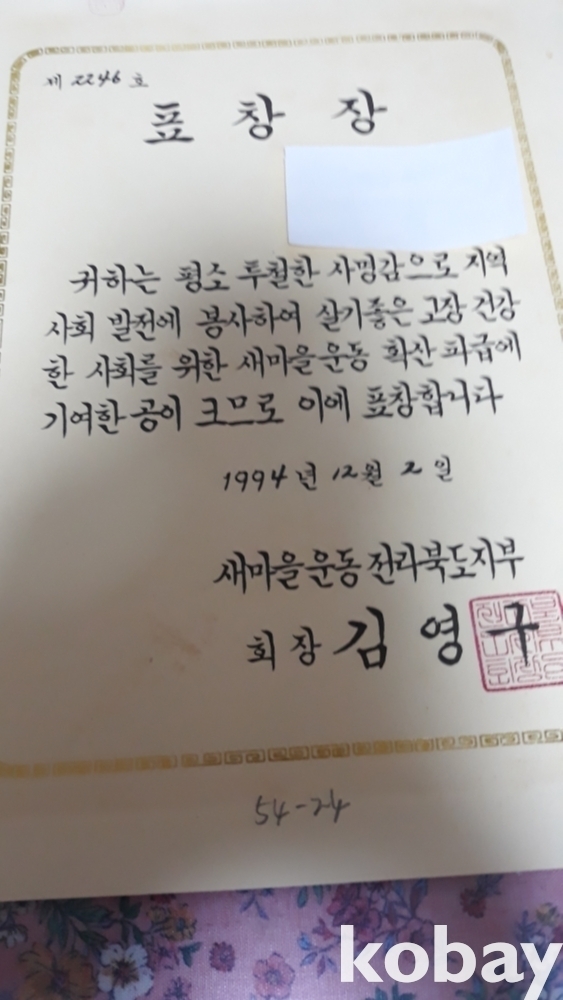 제 2246 호
표 창 장
귀하는 평소 투철한 사명감으로 지역
사회 발전에 봉사하여 살기좋은 고장 건강
한 사회를 위한 새마을운동 확산 파급에
기여한 공이 크므로 이에 표창합니다
1994년 12월 2일
새마을운동전라북도지부
회장 김영구
54-24
kobay